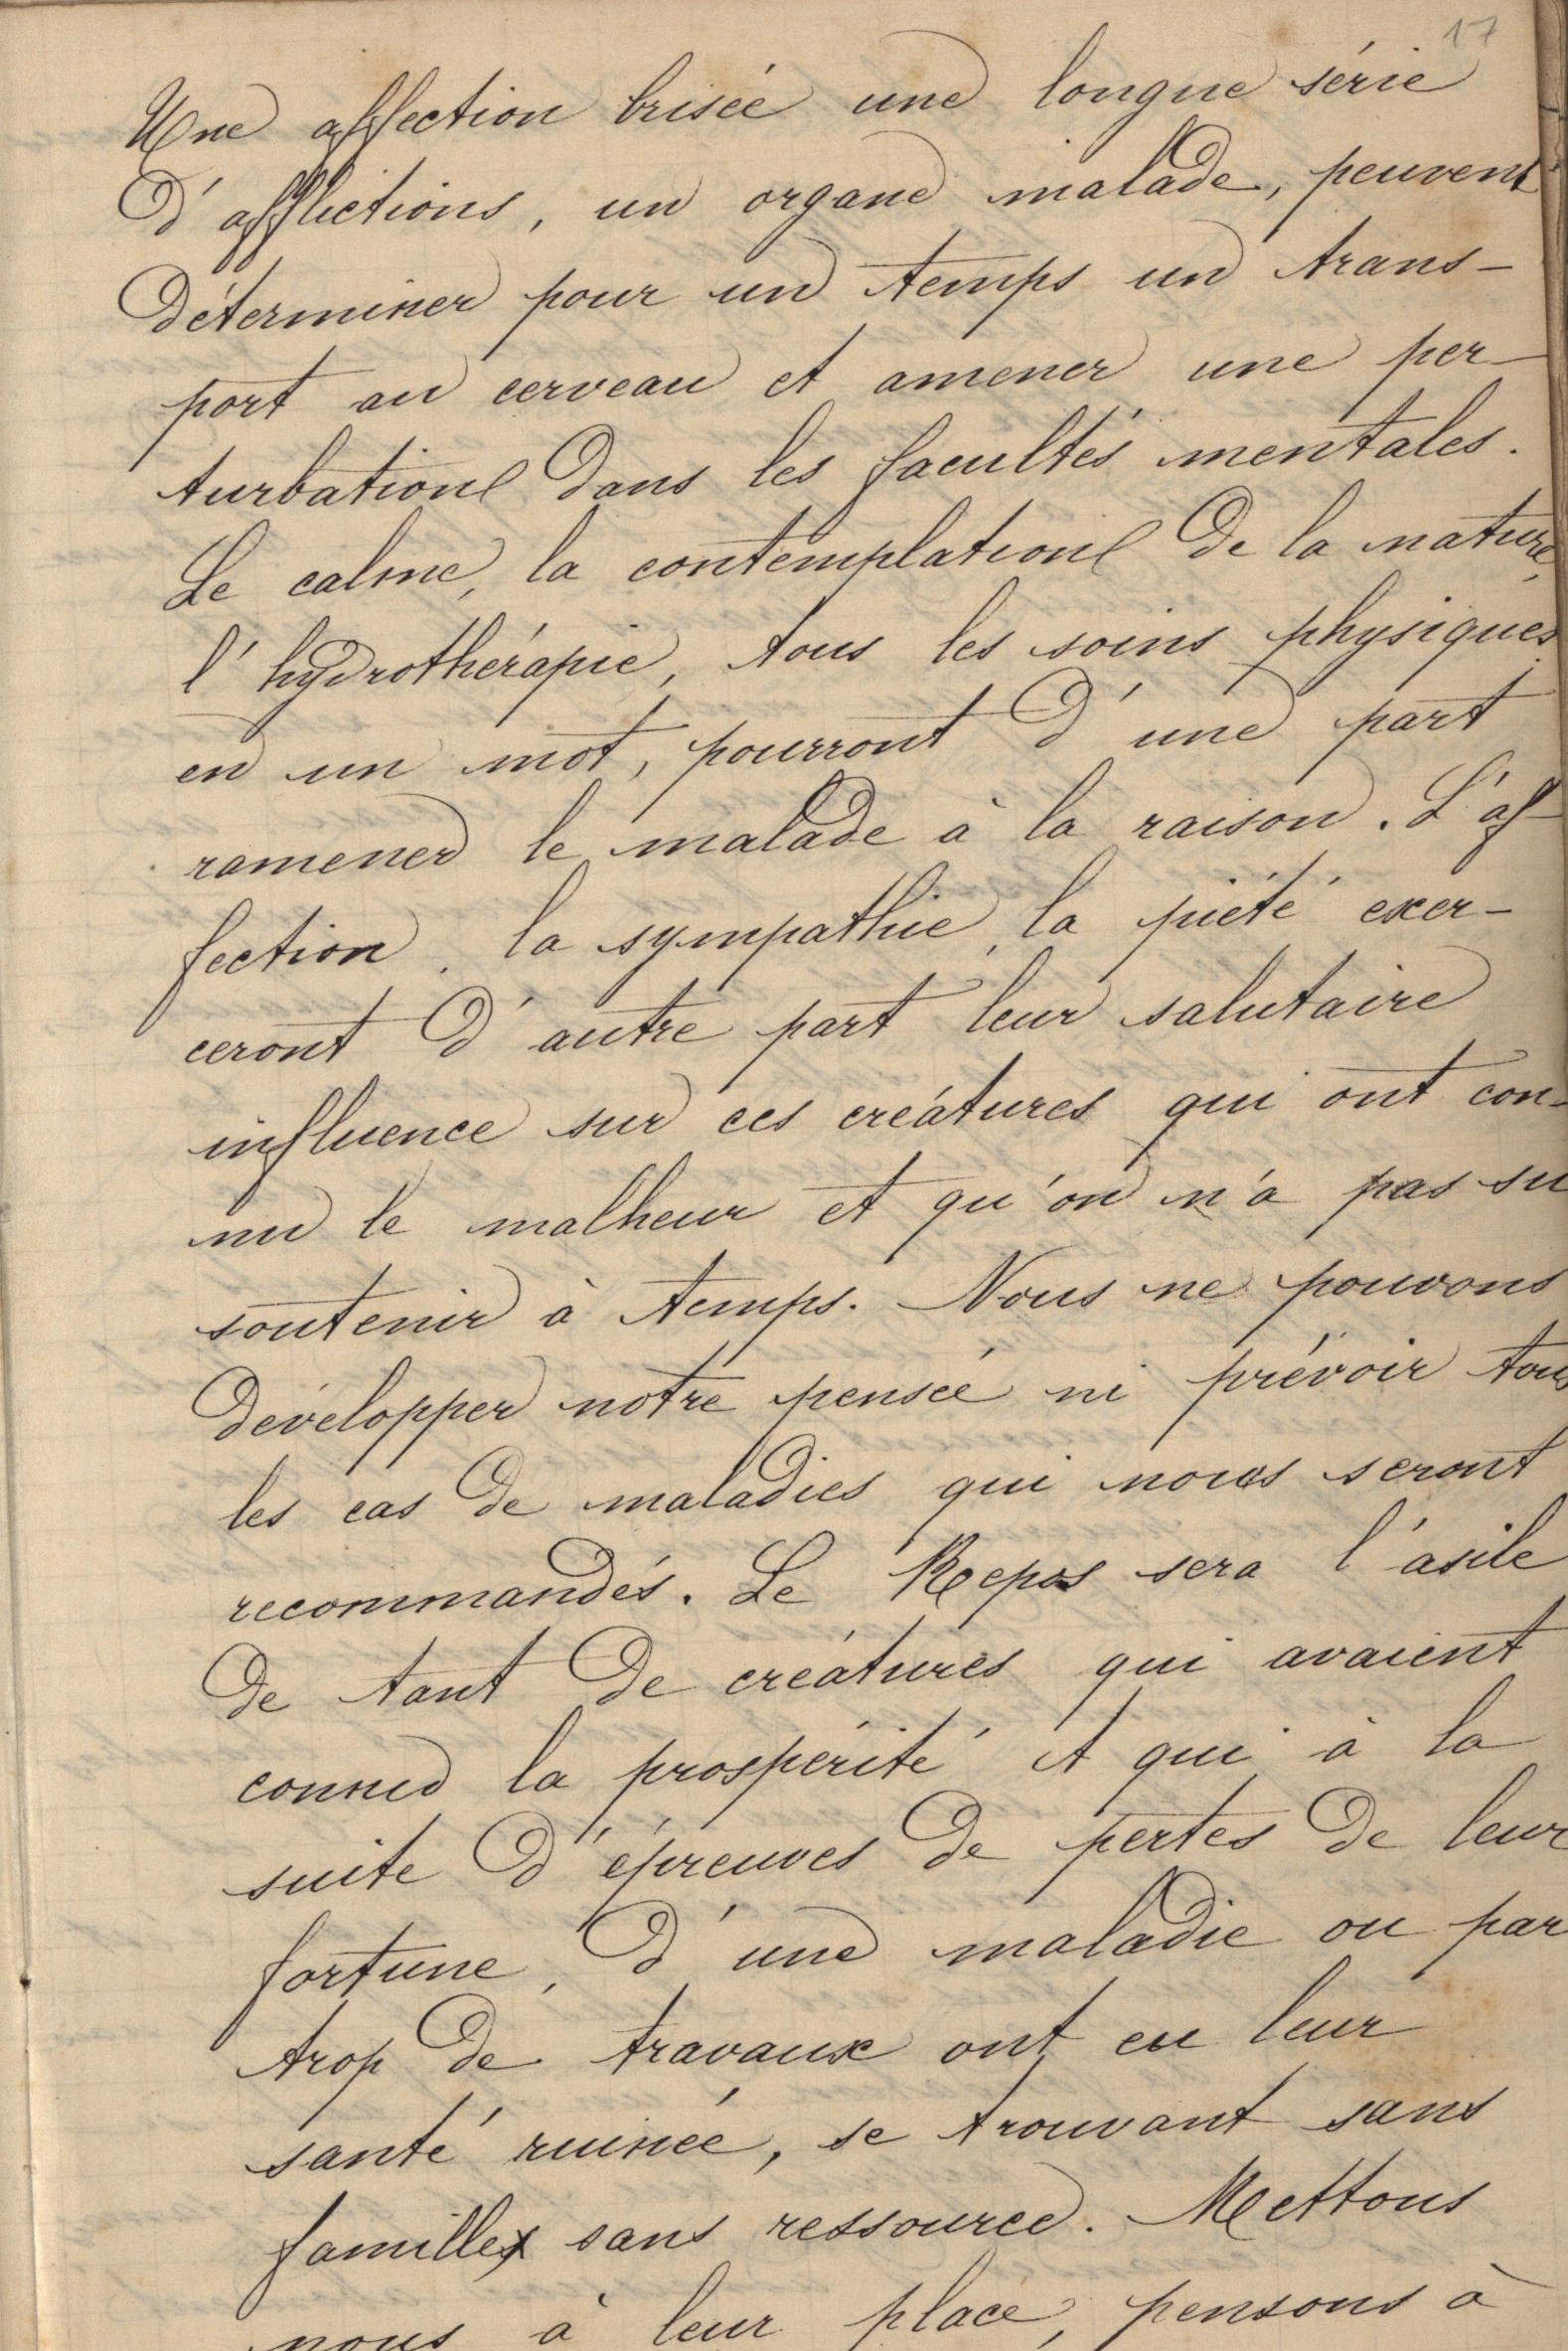 17
Une affection brisée une longue série
d'afflictions, un organe malade, peuvent
déterminer pour un temps un trans-
port au cerveau et amener une per-
turbation dans les facultés mentales.
Le calme, la contemplation de la nature,
l'hydrothérapie, tous les soins physiques
en un mot, pourront d'une part
ramener le malade à la raison. L'af-
fection, la sympathie, la piété exer-
ceront d'autre part leur salutaire
influence sur ces créatures qui ont con-
nu le malheur et qu'on n'a pas su
soutenir à temps. Nous ne pouvons
développer notre pensée ni prévoir tous
les cas de maladies qui nous seront
recommandés. Le Repos sera l'asile
de tant de créatures qui avaient
connu la prospérité et qui à la
suite d'épreuves de pertes de leur
fortune, d'une maladie ou par
trop de travaux ont eu leur
santé ruinée, se trouvant sans
famille, sans ressource. Mettons
nous à leur place, pensons à